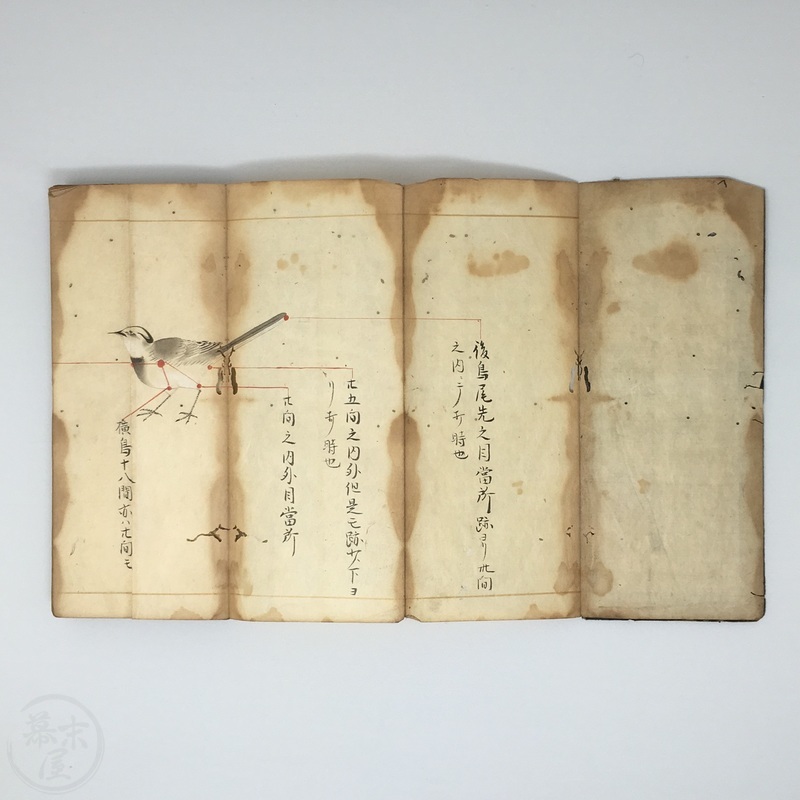 後鳥尾先之目當所跡ヨリ卅間
之内ニ而打時也
廿五間之内外但是モ跡サ下ヨ
リ打時也
廿間之内外目當所
横鳥十八間亦ハ廿間モ
幕末屋